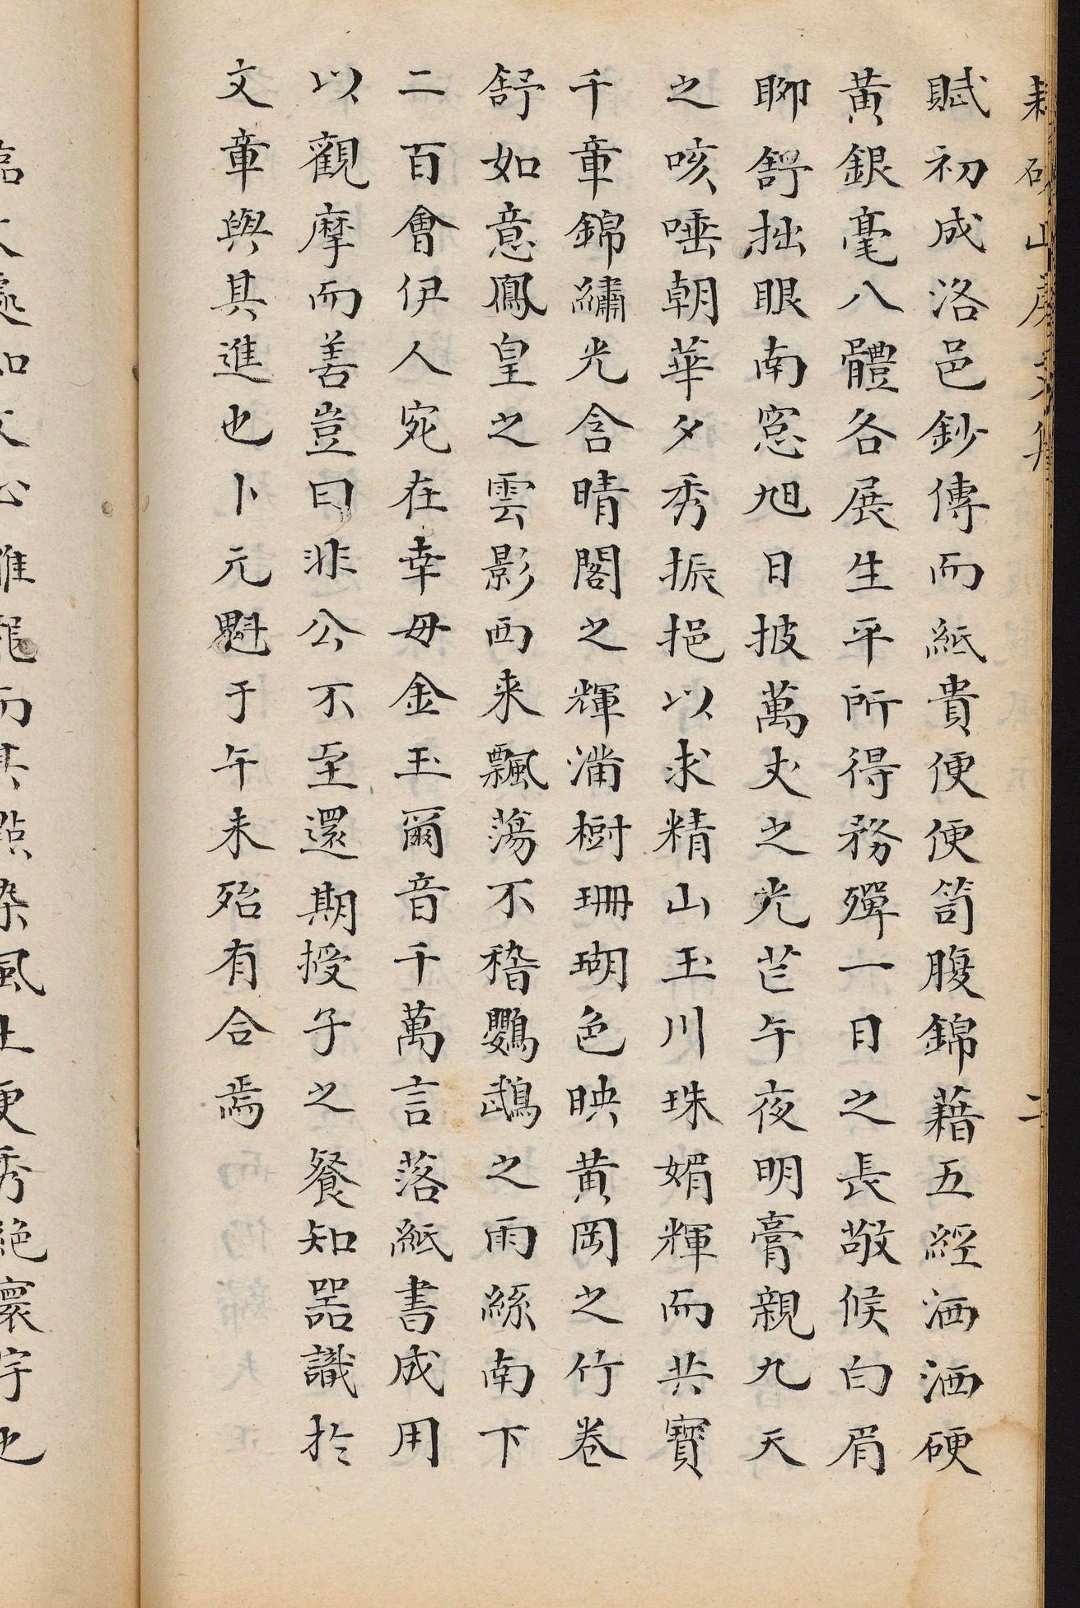 賦初成洛邑鈔傳而紙貴便便笥腹錦藉五經洒洒硬
黃銀毫八體各展生平所得務殫一日之長敬候白眉
聊舒拙眼南窓旭日披萬丈之光芒午夜明膏親九天
之咳唾朝華夕秀振挹以求精山玉川珠媚輝而共寶
千章錦繡光含晴閣之輝滿樹珊瑚色映黃岡之竹卷
舒如意鳳皇之雲影西来飄蕩不稽鸚鵡之雨絲南下
二百會伊人宛在幸毋金玉爾音千萬言落紙書成用
以觀摩而善豈曰非公不至還期授子之餐知噐識於
文章與其進也卜元魁于午未殆有合焉